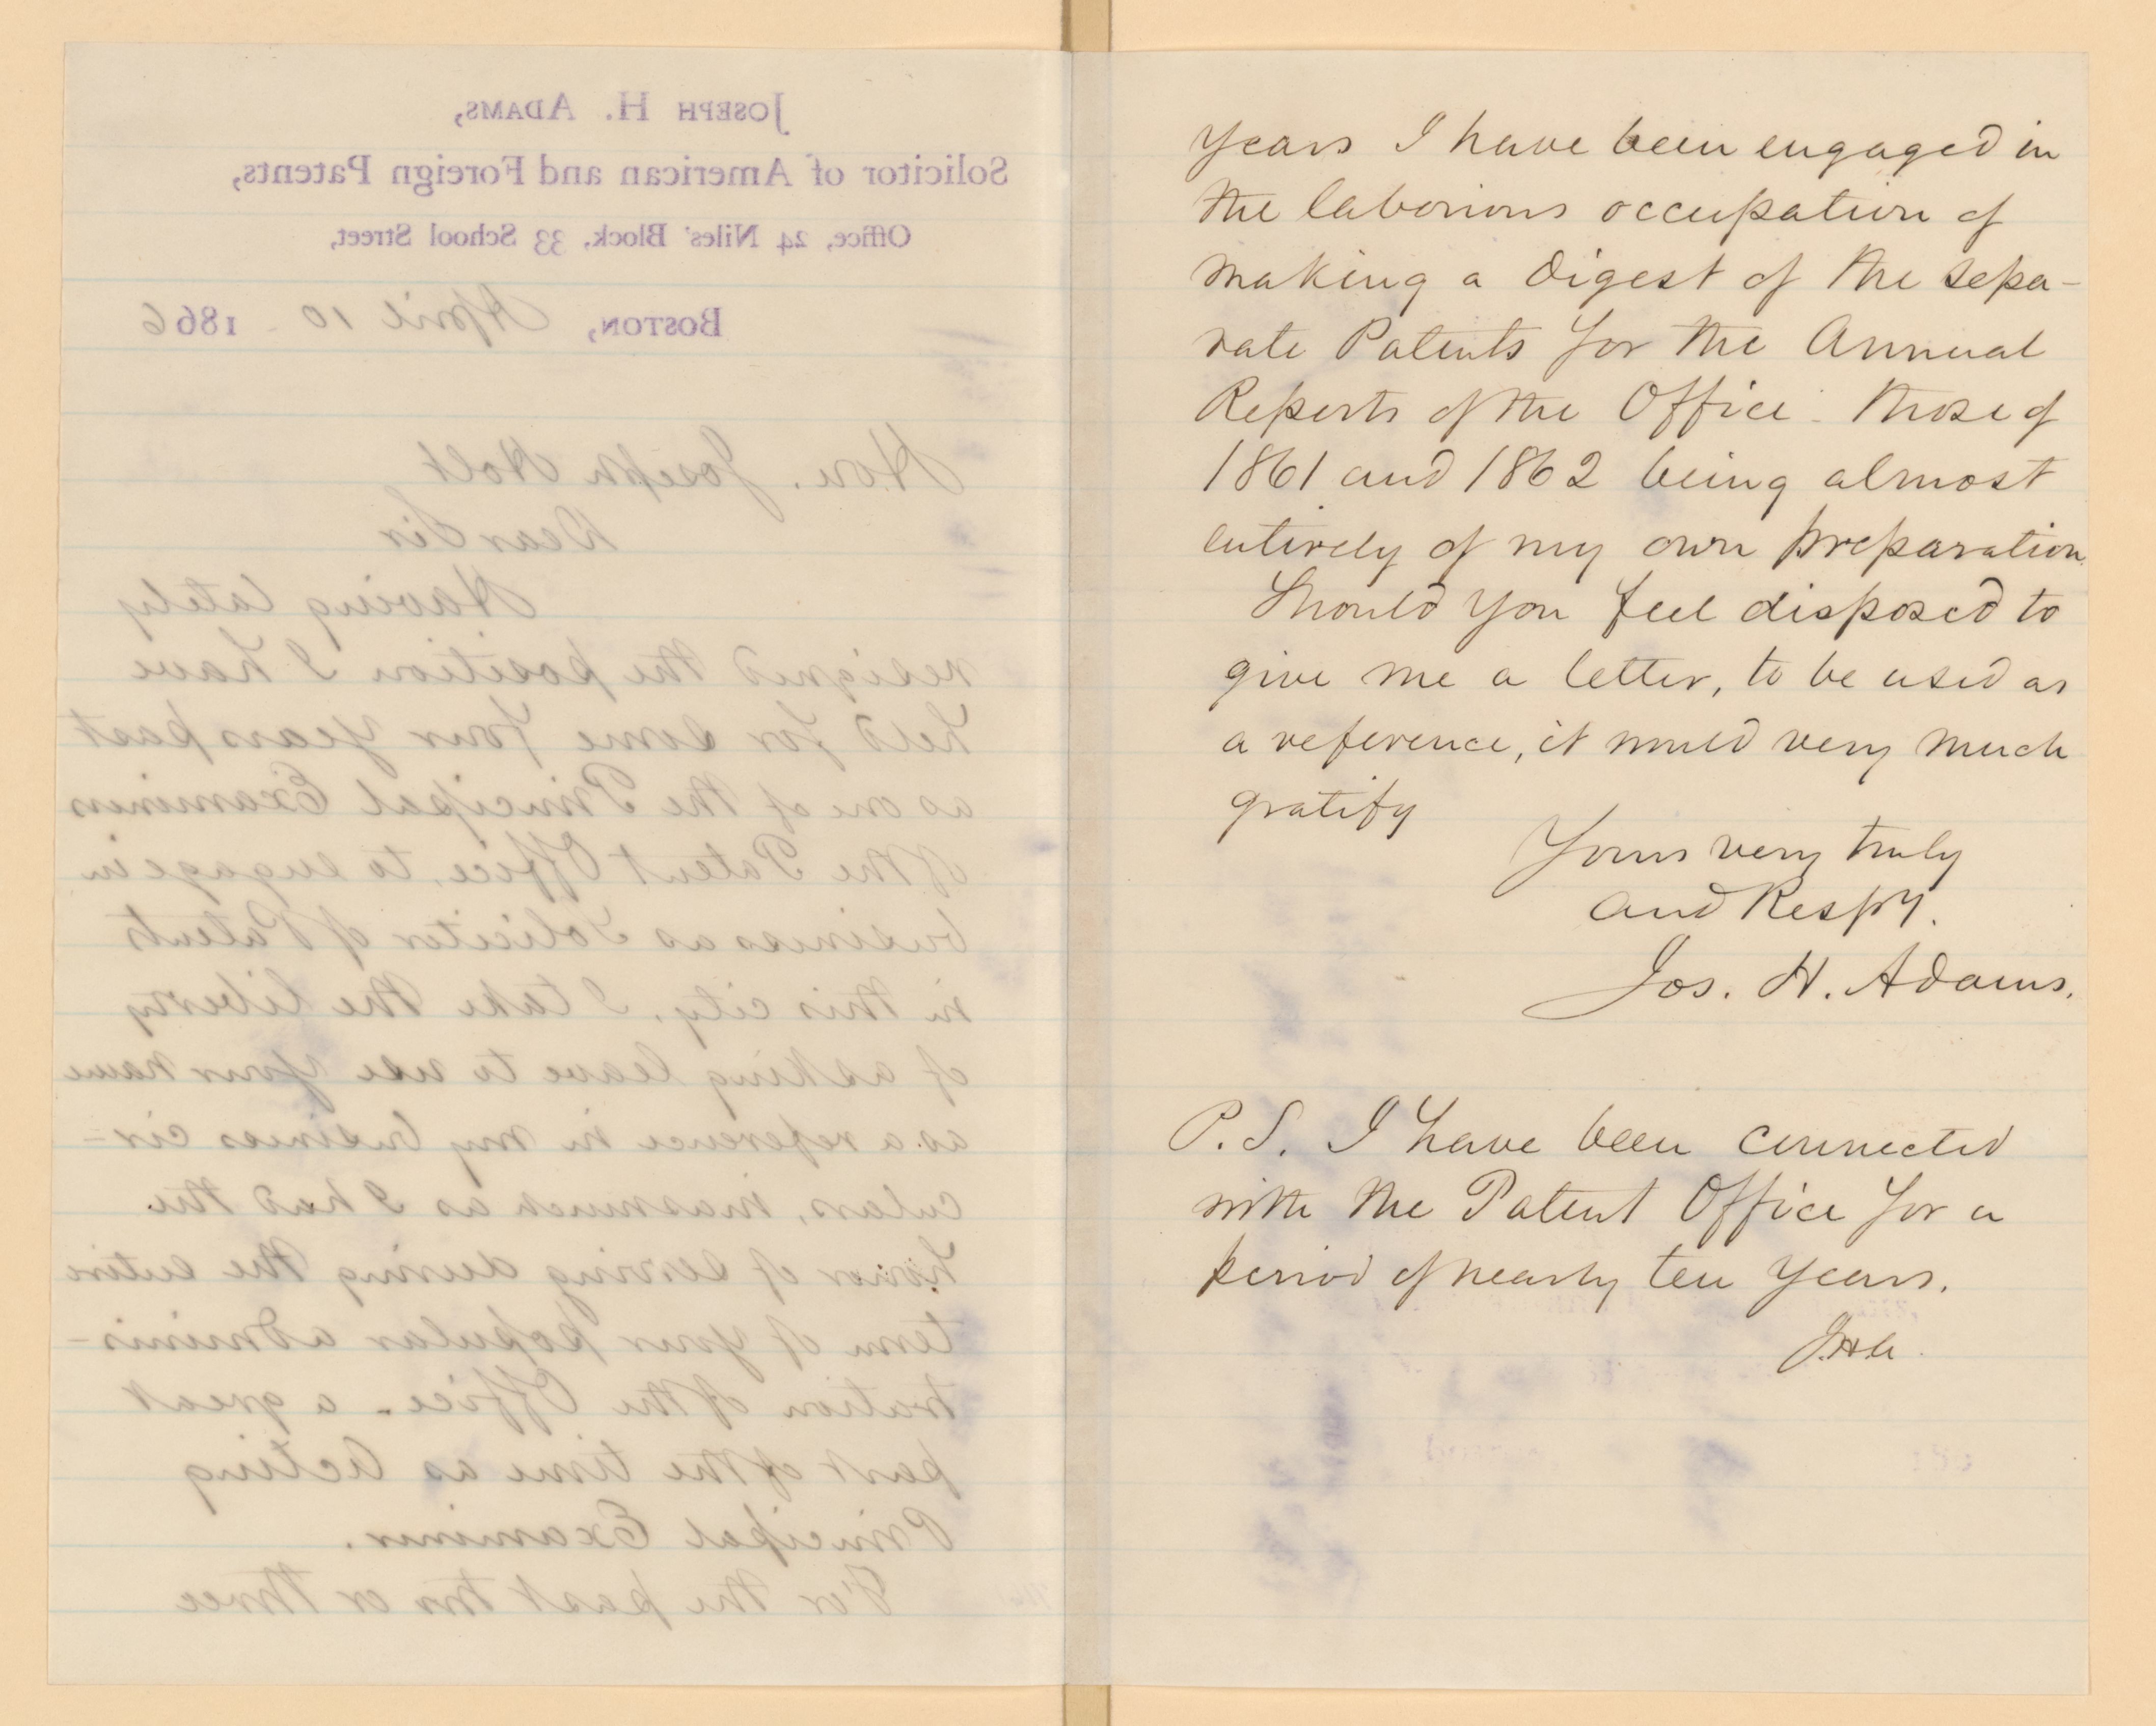 Joseph H. Adams,
Solicitor of American and Foreign Patents,
Office, 24 Niles' Block, 33 School Street,
Boston, April 10 1866
Hon. Joseph Holt
Dear Sir
Having lately
resigned the position I have
held for some four years past
as one of the Principal Examiners
of the Patent Office, to engage in
business as Solicitor of Patents
in this city, I take the liberty
of asking leave to use your name
as a reference in my business cir-
culars, inasmuch as I had the
honor of serving during the entire
term of your popular adminis-
tration of the Office - a great
part of the time as Acting
Principal Examiner.
For the past two or three
years I have been engaged in
the laborious occupation of
making a digest of the sepa-
rate Patents for the Annual
Reports of the Office - those of
1861 and 1862 being almost
entirely of my own preparation.
Should you feel disposed to
give me a letter, to be used as
a reference, it would very much
gratify
Yours very truly
and Respy.
Jos. H. Adams.
P.S. I have been connected
with the Patent Office for a
period of nearly ten years.
J.H.A.